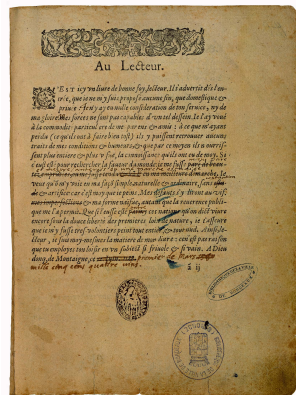 Au Lecteur.
C'EST icy vn liure de bonne foy, lecteur. Il t'aduertit dés l'en-
trée, que ie ne m'y suis proposé aucune fin, que domestique &
priuée: ie n'y ay eu nulle consideration de ton seruice, ny de
ma gloire: mes forces ne sont pas capables d'vn tel dessein. Ie l'ay voué
à la commodité particuliere de mes parens & amis: à ce que m'ayant
perdu (ce qu'ils ont à faire bien tost) ils y puissent retrouuer aucuns
traits de mes conditions & humeurs, & que par ce moyen ils nour-
rissent plus entiere & plus vifue, la connoissance qu'ils ont eu de moy. Si
c'eust esté pour rechercher la faueur du monde, ie me fusse paré de beau-
tez
veux qu'on m'y voie en ma façon simple, naturelle & ordinaire, sans
& artifice: car c'est moy que ie peins. Mes defauts s'y liront au vif,
& ma forme naïfue, autant que la reuerence publi-
que me l'a permis. Que si i'eusse esté nations qu'on dict viure
encore sous la douce liberté des premieres loix de nature, ie t'asseure
que ie m'y fusse tres-volontiers peint tout entier, & tout nud. Ainsi, le-
cteur, ie suis moy-mesmes la matiere de mon liure: ce n'est pas raison
que tu employes ton loisir en vn subiect si friuole & si vain. A Dieu
donq, de Montaigne, ce premier de Mars
mille cinq cens quatre vins.
ã ij